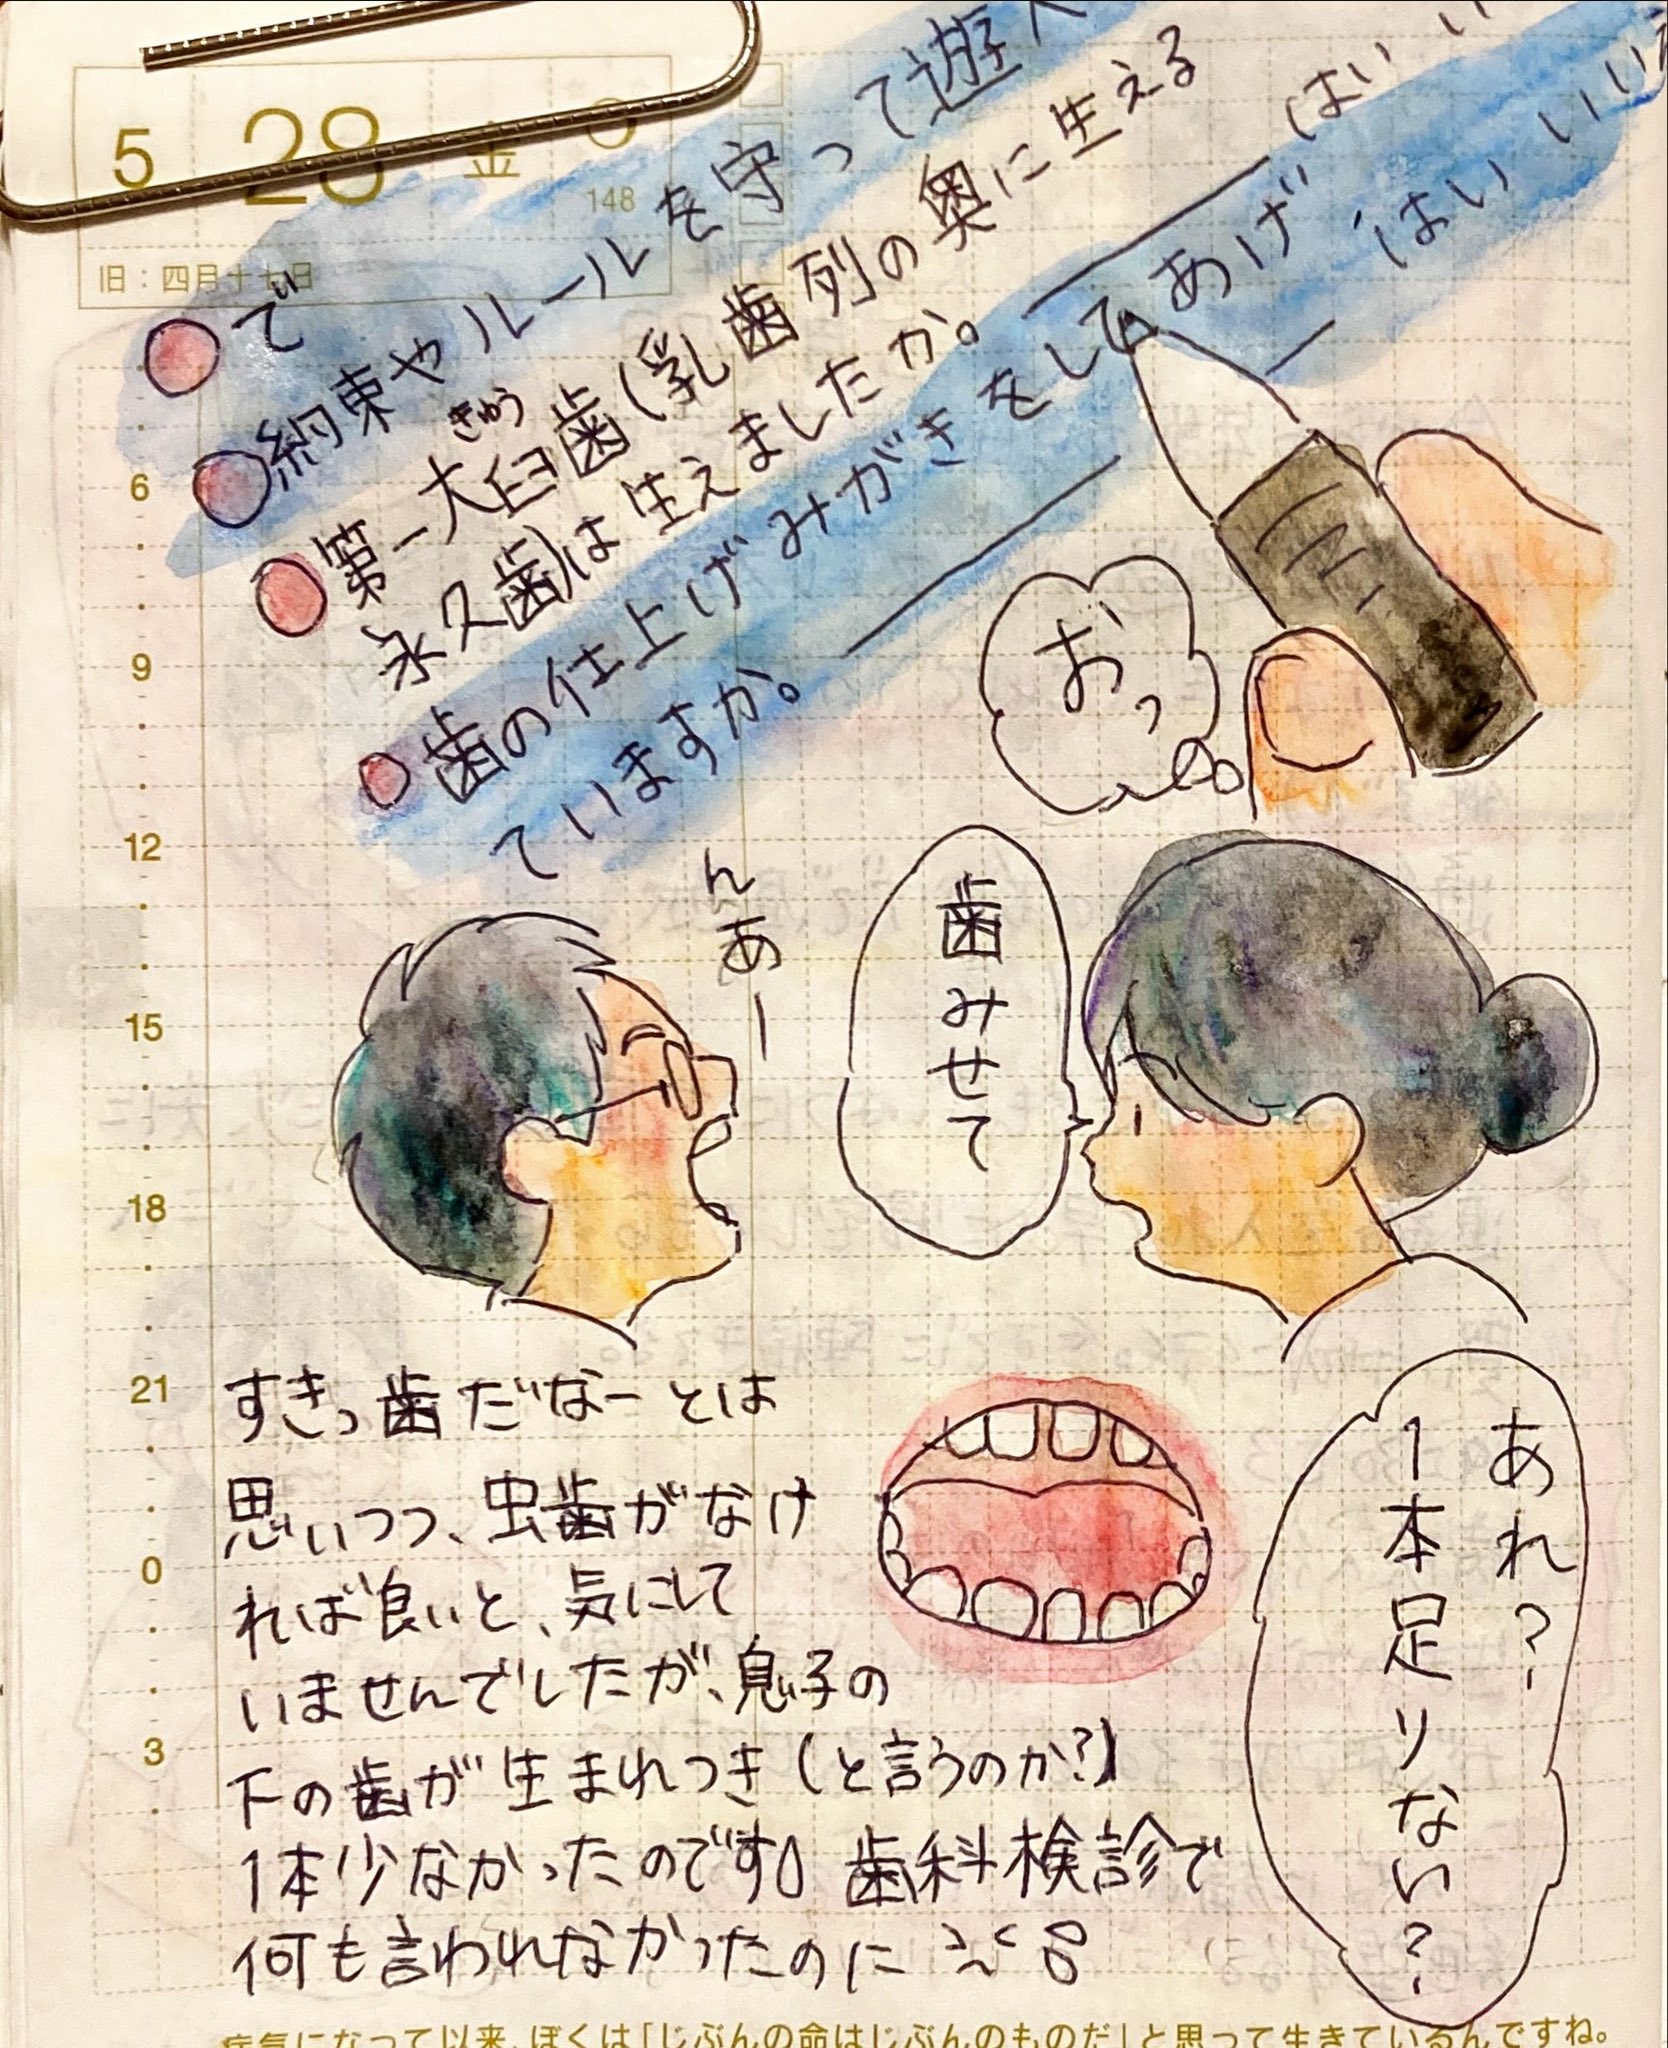 5 28 金
148
旧：四月十七日
で
約束やルールを守って遊べ
はい い
きゅう
第一大臼歯(乳歯列の奥に生える
永久歯)は生えましたか。
はい いいえ
歯の仕上げみがきをしてあげ
ていますか。
おっ
歯みせて
んあー
あれ？
1本足りない？
すきっ歯だなーとは
思いつつ、虫歯がなけ
れば良いと、気にして
いませんでしたが、息子の
下の歯が生まれつき(と言うのか？)
1本少なかったのです 歯科検診で
何も言われなかったのに
6
9
12
15
18
21
0
3
病気になって以来、ぼくは「じぶんの命はじぶんのものだ」と思って生きているんですね。